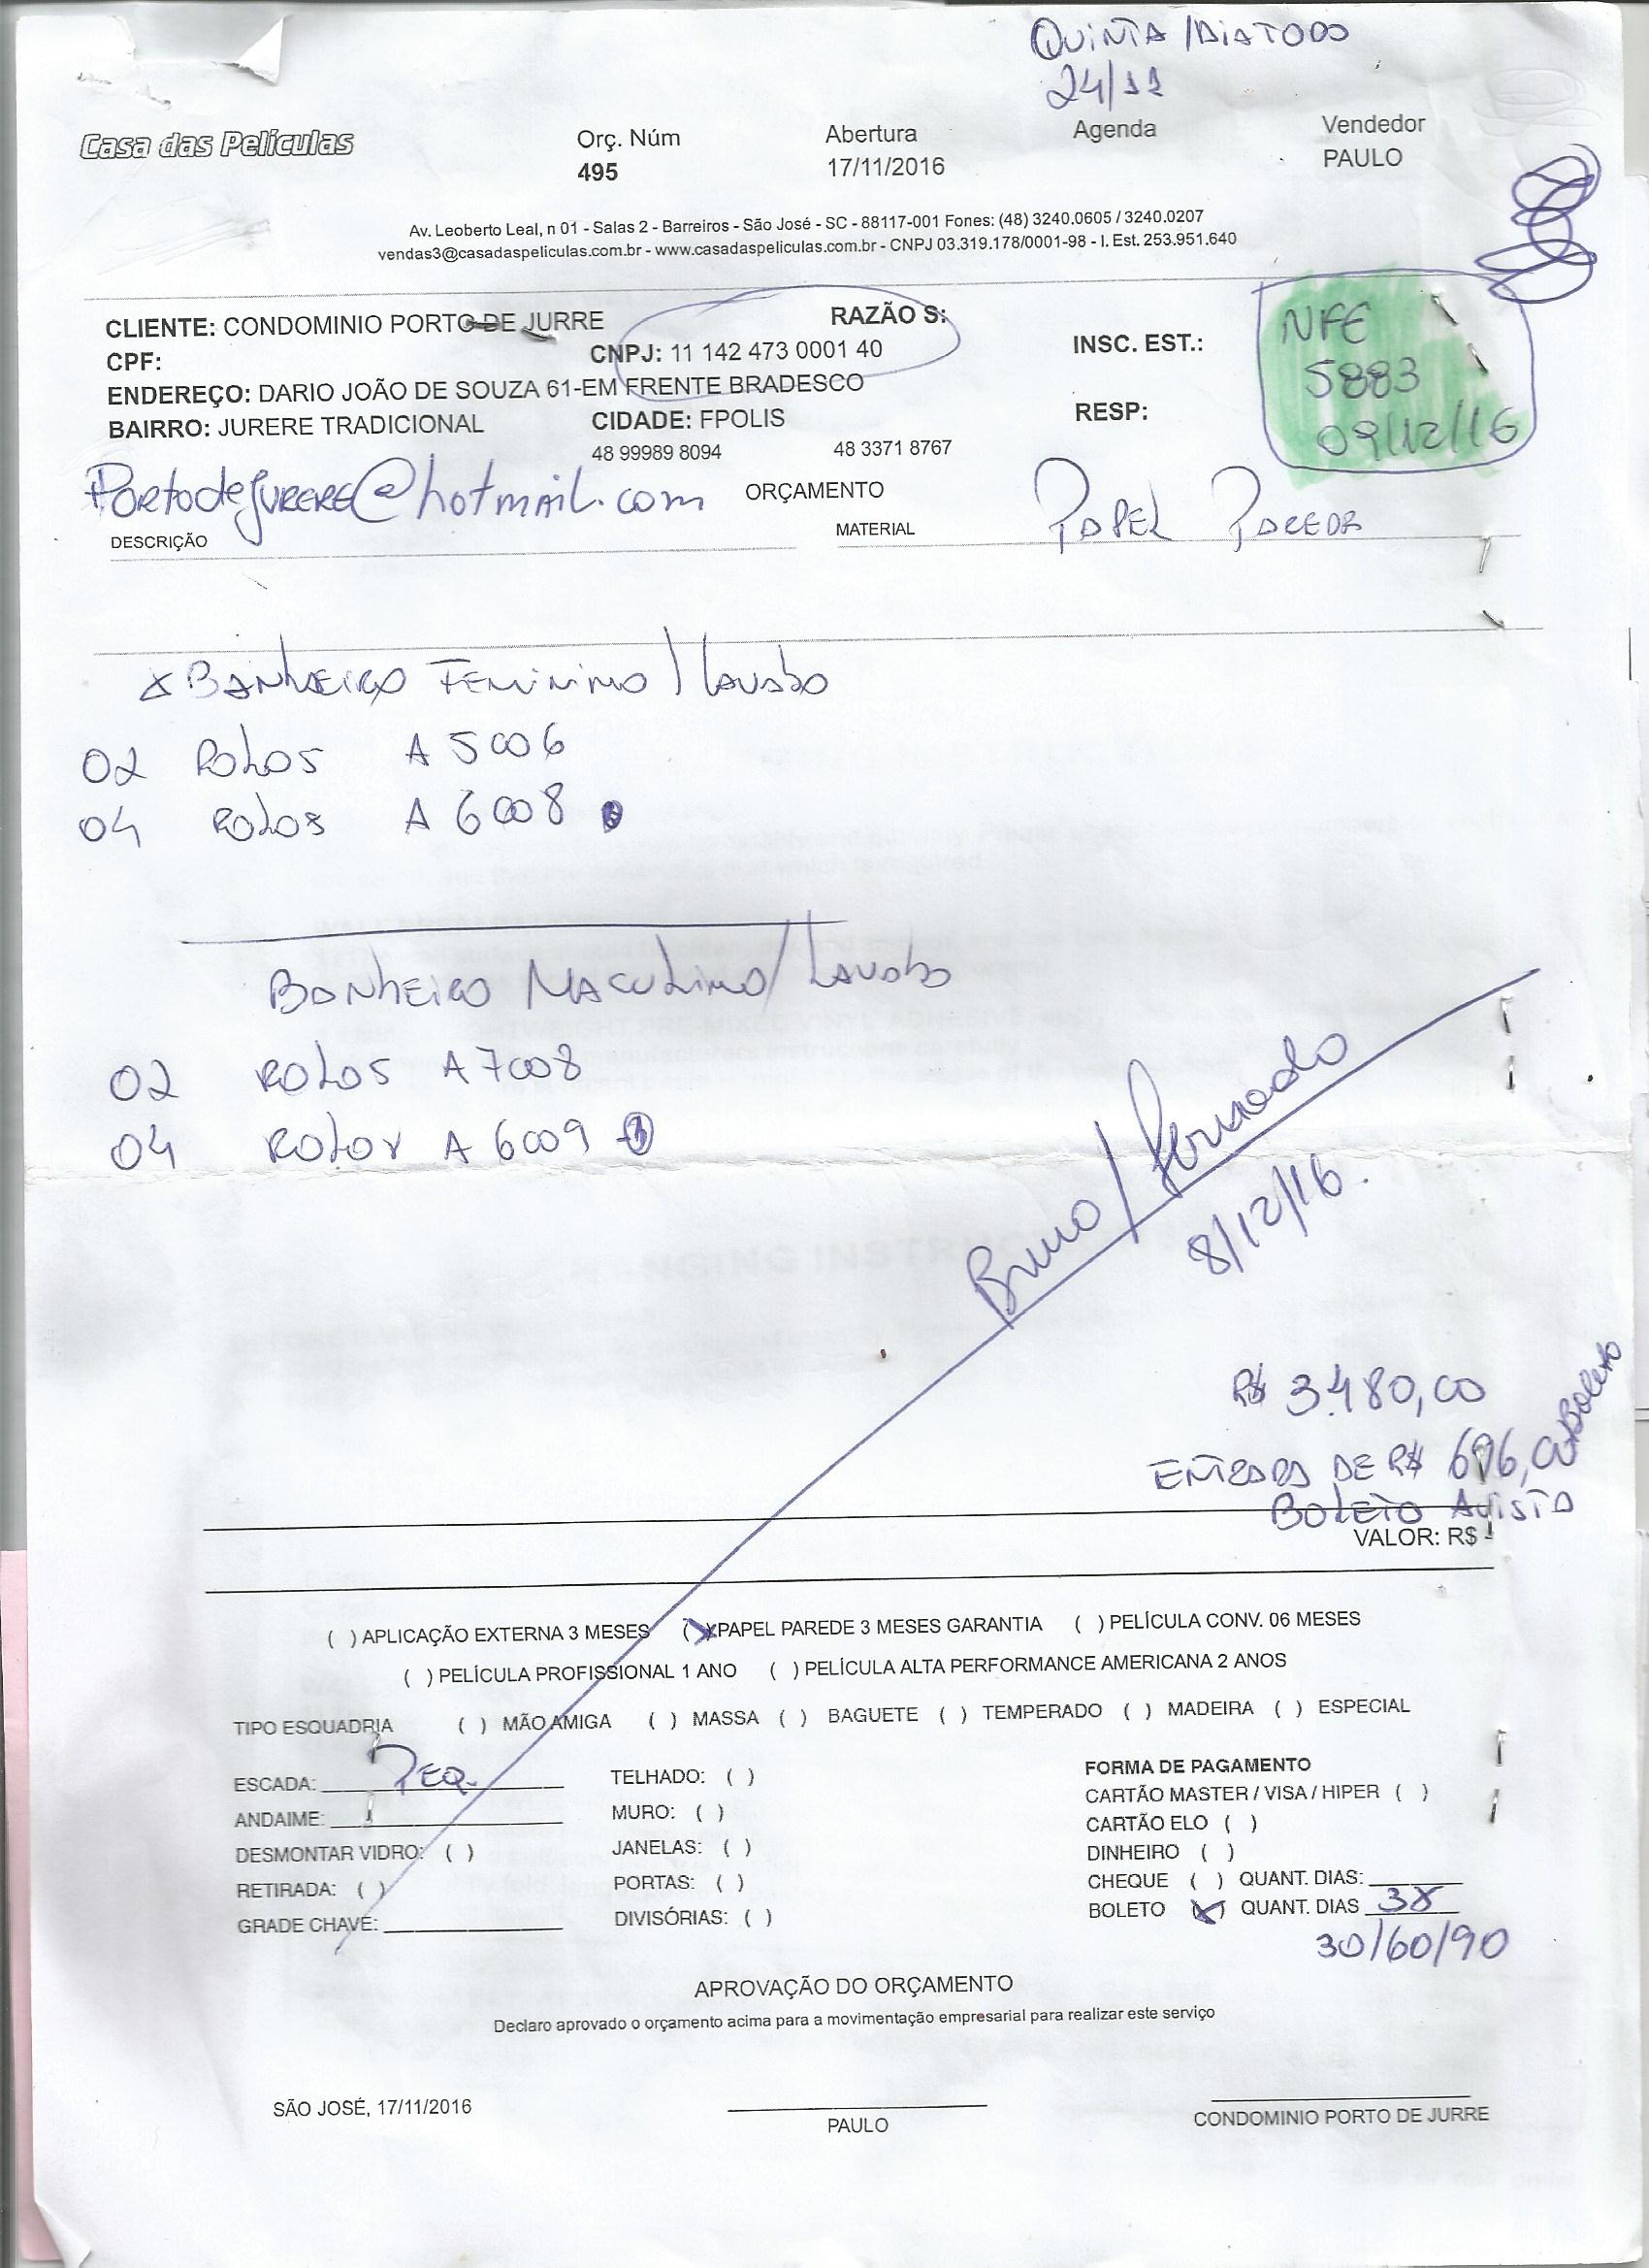 QUINTA / DIATODO
24/11
Casa das Películas
Orç. Núm
495
Abertura
17/11/2016
Agenda
Vendedor
PAULO
Av. Leoberto Leal, n 01 - Salas 2 - Barreiros - São José - SC - 88117-001 Fones: (48) 3240.0605 / 3240.0207
vendas3@casadaspeliculas.com.br - www.casadaspeliculas.com.br - CNPJ 03.319.178/0001-98 - I. Est. 253.951.640
CLIENTE: CONDOMINIO PORTO DE JURRE
RAZÃO S:
CPF:
CNPJ: 11 142 473 0001 40
INSC. EST.:
ENDEREÇO: DARIO JOÃO DE SOUZA 61-EM FRENTE BRADESCO
BAIRRO: JURERE TRADICIONAL
CIDADE: FPOLIS
RESP:
48 99989 8094
48 3371 8767
NFE
5883
09/12/16
PortodeJURERE@hotmail.com
ORÇAMENTO
DESCRIÇÃO
MATERIAL
PAPEL PAREDE
X BANHEIRO FEMININO / LAVABO
02 ROLOS A 5006
04 ROLOS A 6008
BANHEIRO MACULINO / LAVABO
02 ROLOS A 7008
04 ROLOS A 6009
Bruno / Fernando
8/12/16.
R$ 3.480,00
ENTRADA DE R$ 696,00 Boleto
BOLETO AVISTA
VALOR: R$
( ) APLICAÇÃO EXTERNA 3 MESES (X) PAPEL PAREDE 3 MESES GARANTIA ( ) PELÍCULA CONV. 06 MESES
( ) PELÍCULA PROFISSIONAL 1 ANO ( ) PELÍCULA ALTA PERFORMANCE AMERICANA 2 ANOS
TIPO ESQUADRIA ( ) MÃO AMIGA ( ) MASSA ( ) BAGUETE ( ) TEMPERADO ( ) MADEIRA ( ) ESPECIAL
ESCADA: PEQ.
ANDAIME:
DESMONTAR VIDRO: ( )
RETIRADA: ( )
GRADE CHAVE:
TELHADO: ( )
MURO: ( )
JANELAS: ( )
PORTAS: ( )
DIVISÓRIAS: ( )
FORMA DE PAGAMENTO
CARTÃO MASTER / VISA / HIPER ( )
CARTÃO ELO ( )
DINHEIRO ( )
CHEQUE ( ) QUANT. DIAS:
BOLETO (X) QUANT. DIAS 3X
30/60/90
APROVAÇÃO DO ORÇAMENTO
Declaro aprovado o orçamento acima para a movimentação empresarial para realizar este serviço
SÃO JOSÉ, 17/11/2016
PAULO
CONDOMINIO PORTO DE JURRE